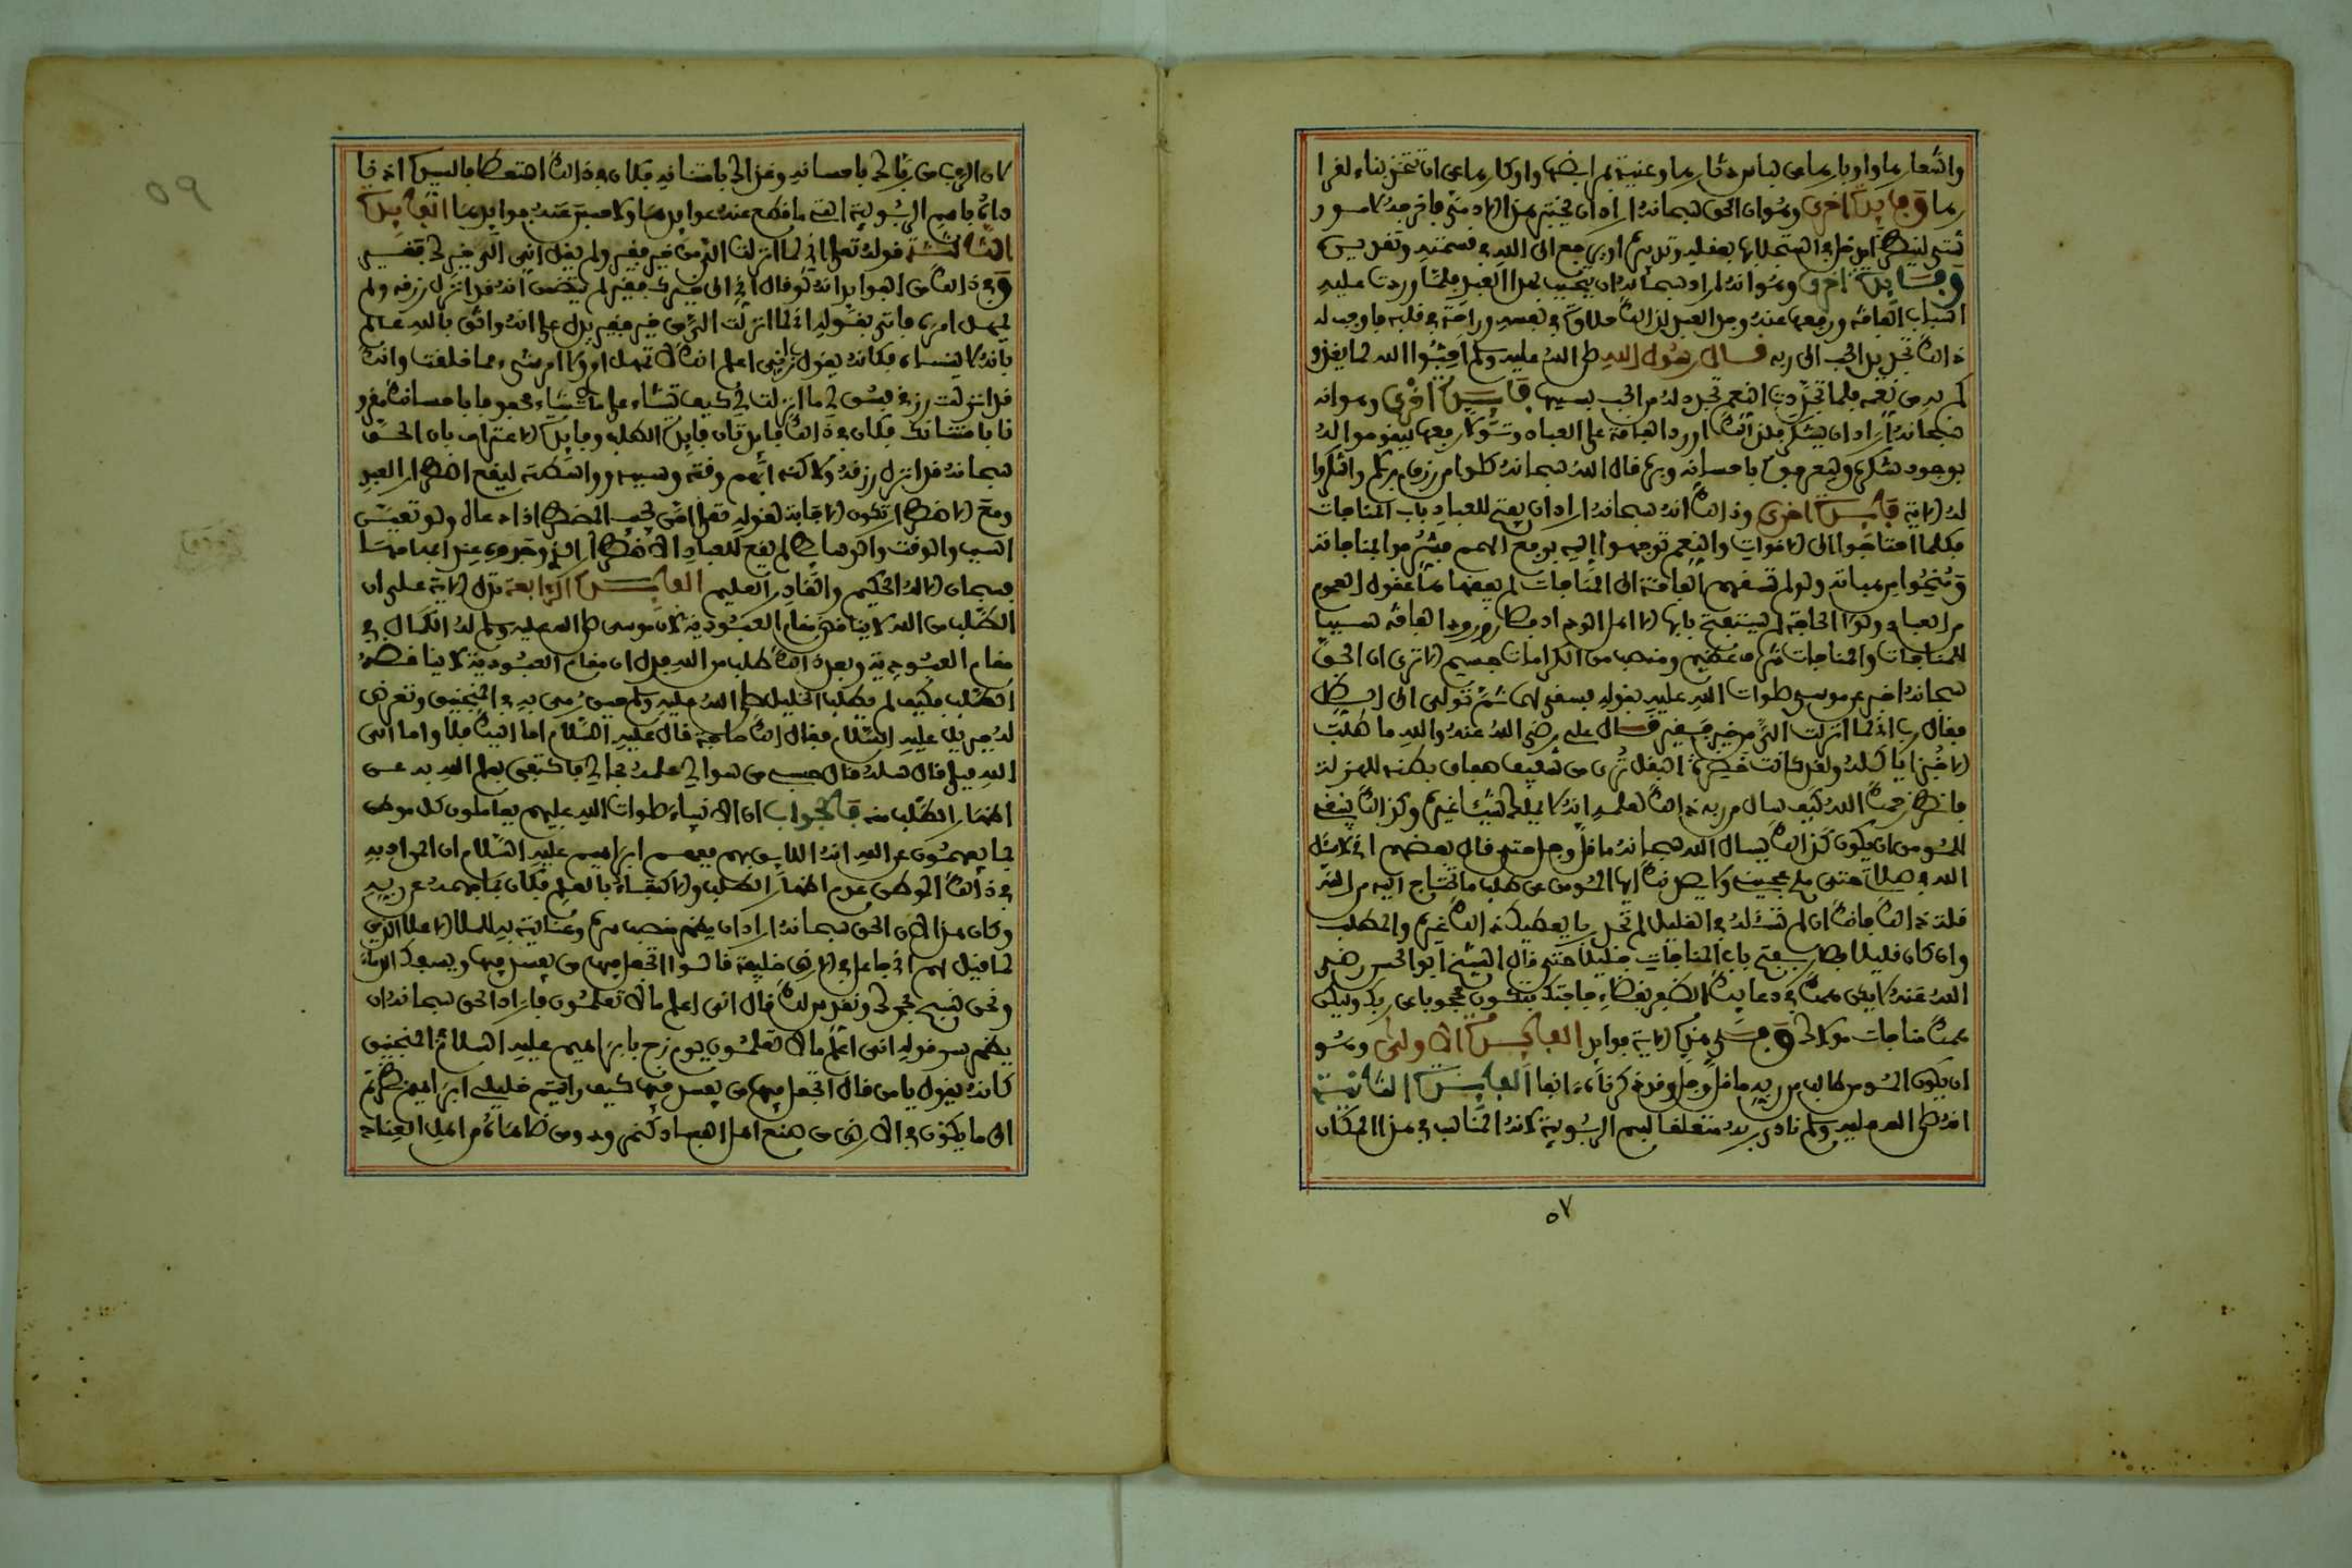 واشعارها واوبارها من لباس دفارها وغنية مراضها واوكارها من ان تتخذ بناء لقرا
رها وفايدة اخرى وهو ان الحق سبحانه اراد ان يختبر هذا الادمي فاخرجه لامور
شتى لينظر ايدخل في استجلابها بعقله وتدبيره او يرجع الى الله في قسمته وتقديره
وفايدة اخرى وهو انه اراد سبحانه ان يتحبب لهذا العبد فلما اوردت عليه
اسباب الفاقة ورفعها عنه وجد العبد لذلك حلاوة في نفسه وراحة في قلبه فاوجب له
ذلك تجديد الحب الى ربه قال رسول الله صلى الله عليه وسلم احبوا الله لما يغذو
كم به من نعمه فلما تجددت النعم تجدد له من الحب بحسبها فايدة اخرى وهو انه
سبحانه اراد ان يشكر فلذلك اورد الفاقة على العباد وتولى رفعها ليقوموا له
بوجود شكره وليعرفوه باحسانه وبره قال الله سبحانه كلوا من رزق ربكم واشكروا
له الاية فايدة اخرى وذلك انه سبحانه اراد ان يفتح للعباد باب المناجات
فكلما احتاجوا الى الاقوات والنعم توجهوا اليه برفع الهمم فشرفوا بمناجاته
ومنحوا من هباته ولو لم تسقهم الفاقة الى المناجات لم يفقهها عقول العموم
من العباد ولولا الحاجة لم يستفتح بابها الا اهل الوداد فصار ورود الفاقة سببا
للمناجات والمناجات شرف عظيم ومنصب من الكرامات جسيم الا ترى ان الحق
سبحانه اخبر عن موسى صلوات الله عليه بقوله فسقى لهما ثم تولى الى الظل
فقال رب اني لما انزلت الي من خير فقير قال علي رضي الله عنه والله ما طلب
الا خبزا ياكله ولقد كانت خضرة البقل ترى من شفيف صفاق بطنه لهزاله
فانظر رحمك الله كيف سال من ربه ذلك لعلمه انه لا يملك شيئا غيره وكذلك ينبغي
للمومن ان يكون كذلك يسال الله سبحانه ما قل وجل حتى قال بعضهم اني لاسئل
الله في صلاتي حتى ملح عجيني ولا يصدنك ايها المومن عن طلب ما تحتاج اليه من الله
قلة ذلك فانك ان لم تسئله في القليل لم تجد ربا يعطيك ذلك غيره والمطلب
وان كان قليلا فصار بفتح باب المناجات جليلا حتى قال الشيخ ابو الحسن رضي
الله عنه لا يكن همك في دعايك الظفر بقضاء حاجتك فتكون محجوبا عن ربك وليكن
همك مناجات مولاك وفي هذه الاية فوايد الفايدة الاولى وهو
ان يكون المومن طالبا من ربه ما قل وجل وقد ذكرناه انفا الفايدة الثانية
انه صلى الله عليه وسلم نادى ربه متعلقا باسم الربوبية لانه المناسب في هذا المكان
٥٧
٥٩
لان الرب من رباك باحسانه وغذاك بامتنانه فكان في ذلك استعطافا لسيده اذ نا
داه باسم الربوبية التي ما قطع عنه عوايدها ولا حبس عنه فوايدها الفايدة
الثالثة قوله تعلى اني لما انزلت الي من خير فقير ولم يقل اني الى خيرك فقير
وفي ذلك من الفوايد انه لو قال اني الى خيرك فقير لم يتضمن انه قد انزل رزقه ولم
يهمل امره فاتى بقوله اني لما انزلت الي من خير فقير يدل على انه واثق بالله عالم
بانه لا ينساه فكانه يقول رب اني اعلم انك لا تهمل امري ولا امر شيء مما خلقت وانك
قد انزلت رزقي فسق لي ما انزلت لي كيف تشاء على ما تشاء محفوفا باحسانك مقرو
نا بامتنانك فكان في ذلك فايدتان فايدة الطلب وفايدة الاعتراف بان الحق
سبحانه قد انزل رزقه ولاكنه ابهم وقته وسببه وواسطته ليقع اضطرار العبد
ومع الاضطرار تكون الاجابة لقوله تعلى امن يجب المضطر اذا دعاه ولو تعين
السبب والوقت والوسايط لم يقع للعباد الاضطرار الذي وجوده عند ابهامها
فسبحان الاله الحكيم والقادر العليم الفايدة الرابعة تدل الاية على ان
الطلب من الله لا يناقض مقام العبودية لان موسى صلى الله عليه وسلم له الكمال في
مقام العبودية وبعد ذلك طلب من الله فدل ان مقام العبودية لا يناقضه
الطلب فكيف لم يطلب الخليل صلى الله عليه وسلم حين رمي به في المنجنيق وتعرض
له جبريل عليه السلام فقال الك حاجة قال عليه السلام اما اليك فلا واما الى
الله فبلى قال سله قال حسبي من سوالي علمه بحالي فاكتفى بعلم الله به عن
اظهار الطلب منه فالجواب ان الانبياء صلوات الله عليهم يعاملون كل موطن
بما يفهمون عن الله انه اللايق بهم ففهم ابراهيم عليه السلام ان المراد به
في ذلك الموطن عدم اظهار الطلب والاكتفاء بالعلم فكان بما فهمه عن ربه
وكان هذا لان الحق سبحانه اراد ان يظهر منصب سره وعنايته به للملا الاعلا الذين
لما قيل لهم اني جاعل في الارض خليفة قالوا اتجعل فيها من يفسد فيها ويسفك الدماء
ونحن نسبح بحمدك ونقدس لك قال اني اعلم ما لا تعلمون فاراد الحق سبحانه ان
يظهر سر قوله اني اعلم ما لا تعلمون يوم زج بابراهيم عليه السلام في المنجنيق
كانه يقول يا من قال اتجعل فيها من يفسد فيها كيف رايتم خليلي ابراهيم نظرتم
الى ما يكون في الارض من صنع اهل الفساد كنمرود ومن ضاهاه من اهل العناد